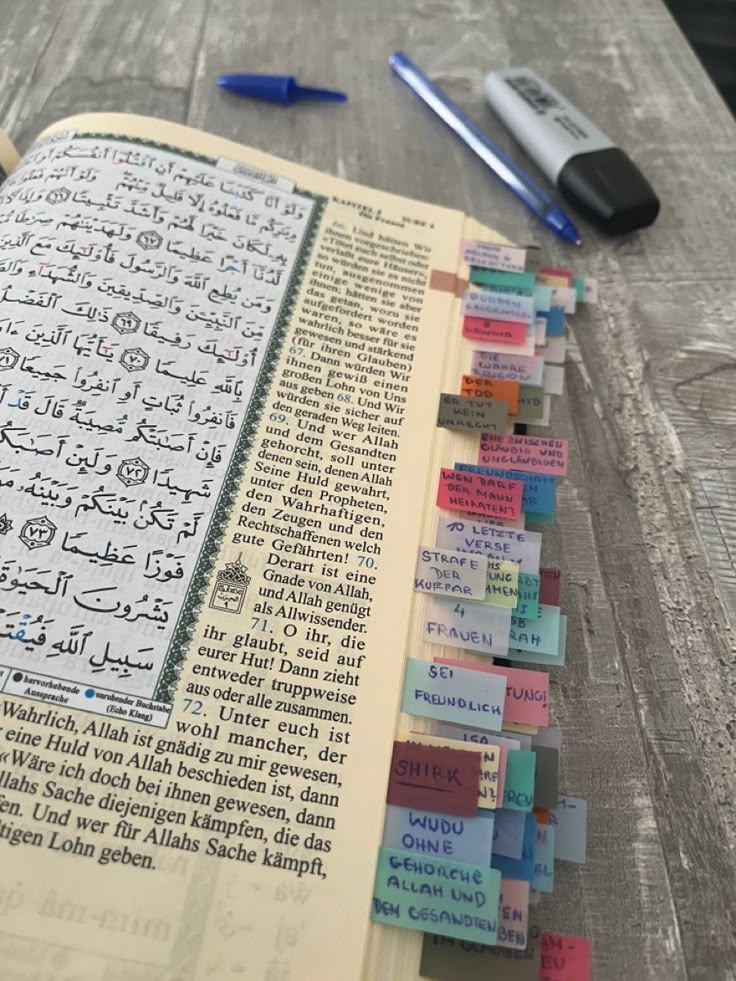 وَلَوْ أَنَّا كَتَبْنَا عَلَيْهِمْ أَنِ ٱقْتُلُوٓا۟ أَنفُسَكُمْ أَوِ
مَّا فَعَلُوهُ إِلَّا قَلِيلٌ مِّنْهُمْ وَلَوْ أَنَّهُمْ فَعَلُوا۟
بِهِۦ لَكَانَ خَيْرًا لَّهُمْ وَأَشَدَّ تَثْبِيتًا ٦٦ وَإِذًا
لَّدُنَّآ أَجْرًا عَظِيمًا ٦٧ وَلَهَدَيْنَٰهُمْ صِرَٰطًا
وَمَن يُطِعِ ٱللَّهَ وَٱلرَّسُولَ فَأُو۟لَٰٓئِكَ مَعَ ٱلَّذِينَ
مِّنَ ٱلنَّبِيِّـۧنَ وَٱلصِّدِّيقِينَ وَٱلشُّهَدَآءِ
أُو۟لَٰٓئِكَ رَفِيقًا ٦٩ ذَٰلِكَ ٱلْفَضْلُ
بِٱللَّهِ عَلِيمًا ٧٠ يَٰٓأَيُّهَا ٱلَّذِينَ
فَٱنفِرُوا۟ ثُبَاتٍ أَوِ ٱنفِرُوا۟ جَمِيعًا ٧١
فَإِنْ أَصَٰبَتْكُم مُّصِيبَةٌ قَالَ قَدْ
شَهِيدًا ٧٢ وَلَئِنْ أَصَٰبَكُمْ
لَّمْ تَكُنۢ بَيْنَكُمْ وَبَيْنَهُۥ
فَوْزًا عَظِيمًا ٧٣
يَشْرُونَ ٱلْحَيَوٰةَ
سَبِيلِ ٱللَّهِ فَيُقْتَلْ
hervorhebende Aussprache
unruhender Buchstabe (Echo Klang)
KAPITEL 4
Die Frauen
SURE 4
66. Und hätten Wir
ihnen vorgeschrieben:
«Tötet euch selbst oder
verlaßt eure Häuser»,
so würden sie es nicht
tun, ausgenommen
einige wenige von
ihnen; hätten sie aber
das getan, wozu sie
aufgefordert worden
waren, so wäre es
wahrlich besser für sie
gewesen und stärkend
(für ihren Glauben)
67. Dann würden Wir
ihnen gewiß einen
großen Lohn von Uns
aus geben 68. Und Wir
würden sie sicher auf
den geraden Weg leiten.
69. Und wer Allah
und dem Gesandten
gehorcht, soll unter
denen sein, denen Allah
Seine Huld gewahrt,
unter den Propheten,
den Wahrhaftigen,
den Zeugen und den
Rechtschaffenen welch
gute Gefährten! 70.
Derart ist eine
Gnade von Allah,
und Allah genügt
als Allwissender.
71. O ihr, die
ihr glaubt, seid auf
eurer Hut! Dann zieht
entweder truppweise
aus oder alle zusammen.
72. Unter euch ist
wohl mancher, der
Wahrlich, Allah ist gnädig zu mir gewesen,
eine Huld von Allah beschieden ist, dann
«Wäre ich doch bei ihnen gewesen, dann
llahs Sache diejenigen kämpfen, die das
fen. Und wer für Allahs Sache kämpft,
tigen Lohn geben.
BÜRDEN
DIE
WAHRE
RELIGION
DER
TOD
ER TUT
KEIN
UNRECHT
EHE ZWISCHEN
GLÄUBIG UND
UNGLÄUBIGEN
FREUNDSCHAFT
WEN DARF
DER MANN
HEIRATEN?
10 LETZTE
VERSE
STRAFE
DER
KUFFAR
4
FRAUEN
SEI
FREUNDLICH
TUNG!
ISA
SHIRK
WUDU
OHNE
GEHORCHE
ALLAH UND
DEM GESANDTEN